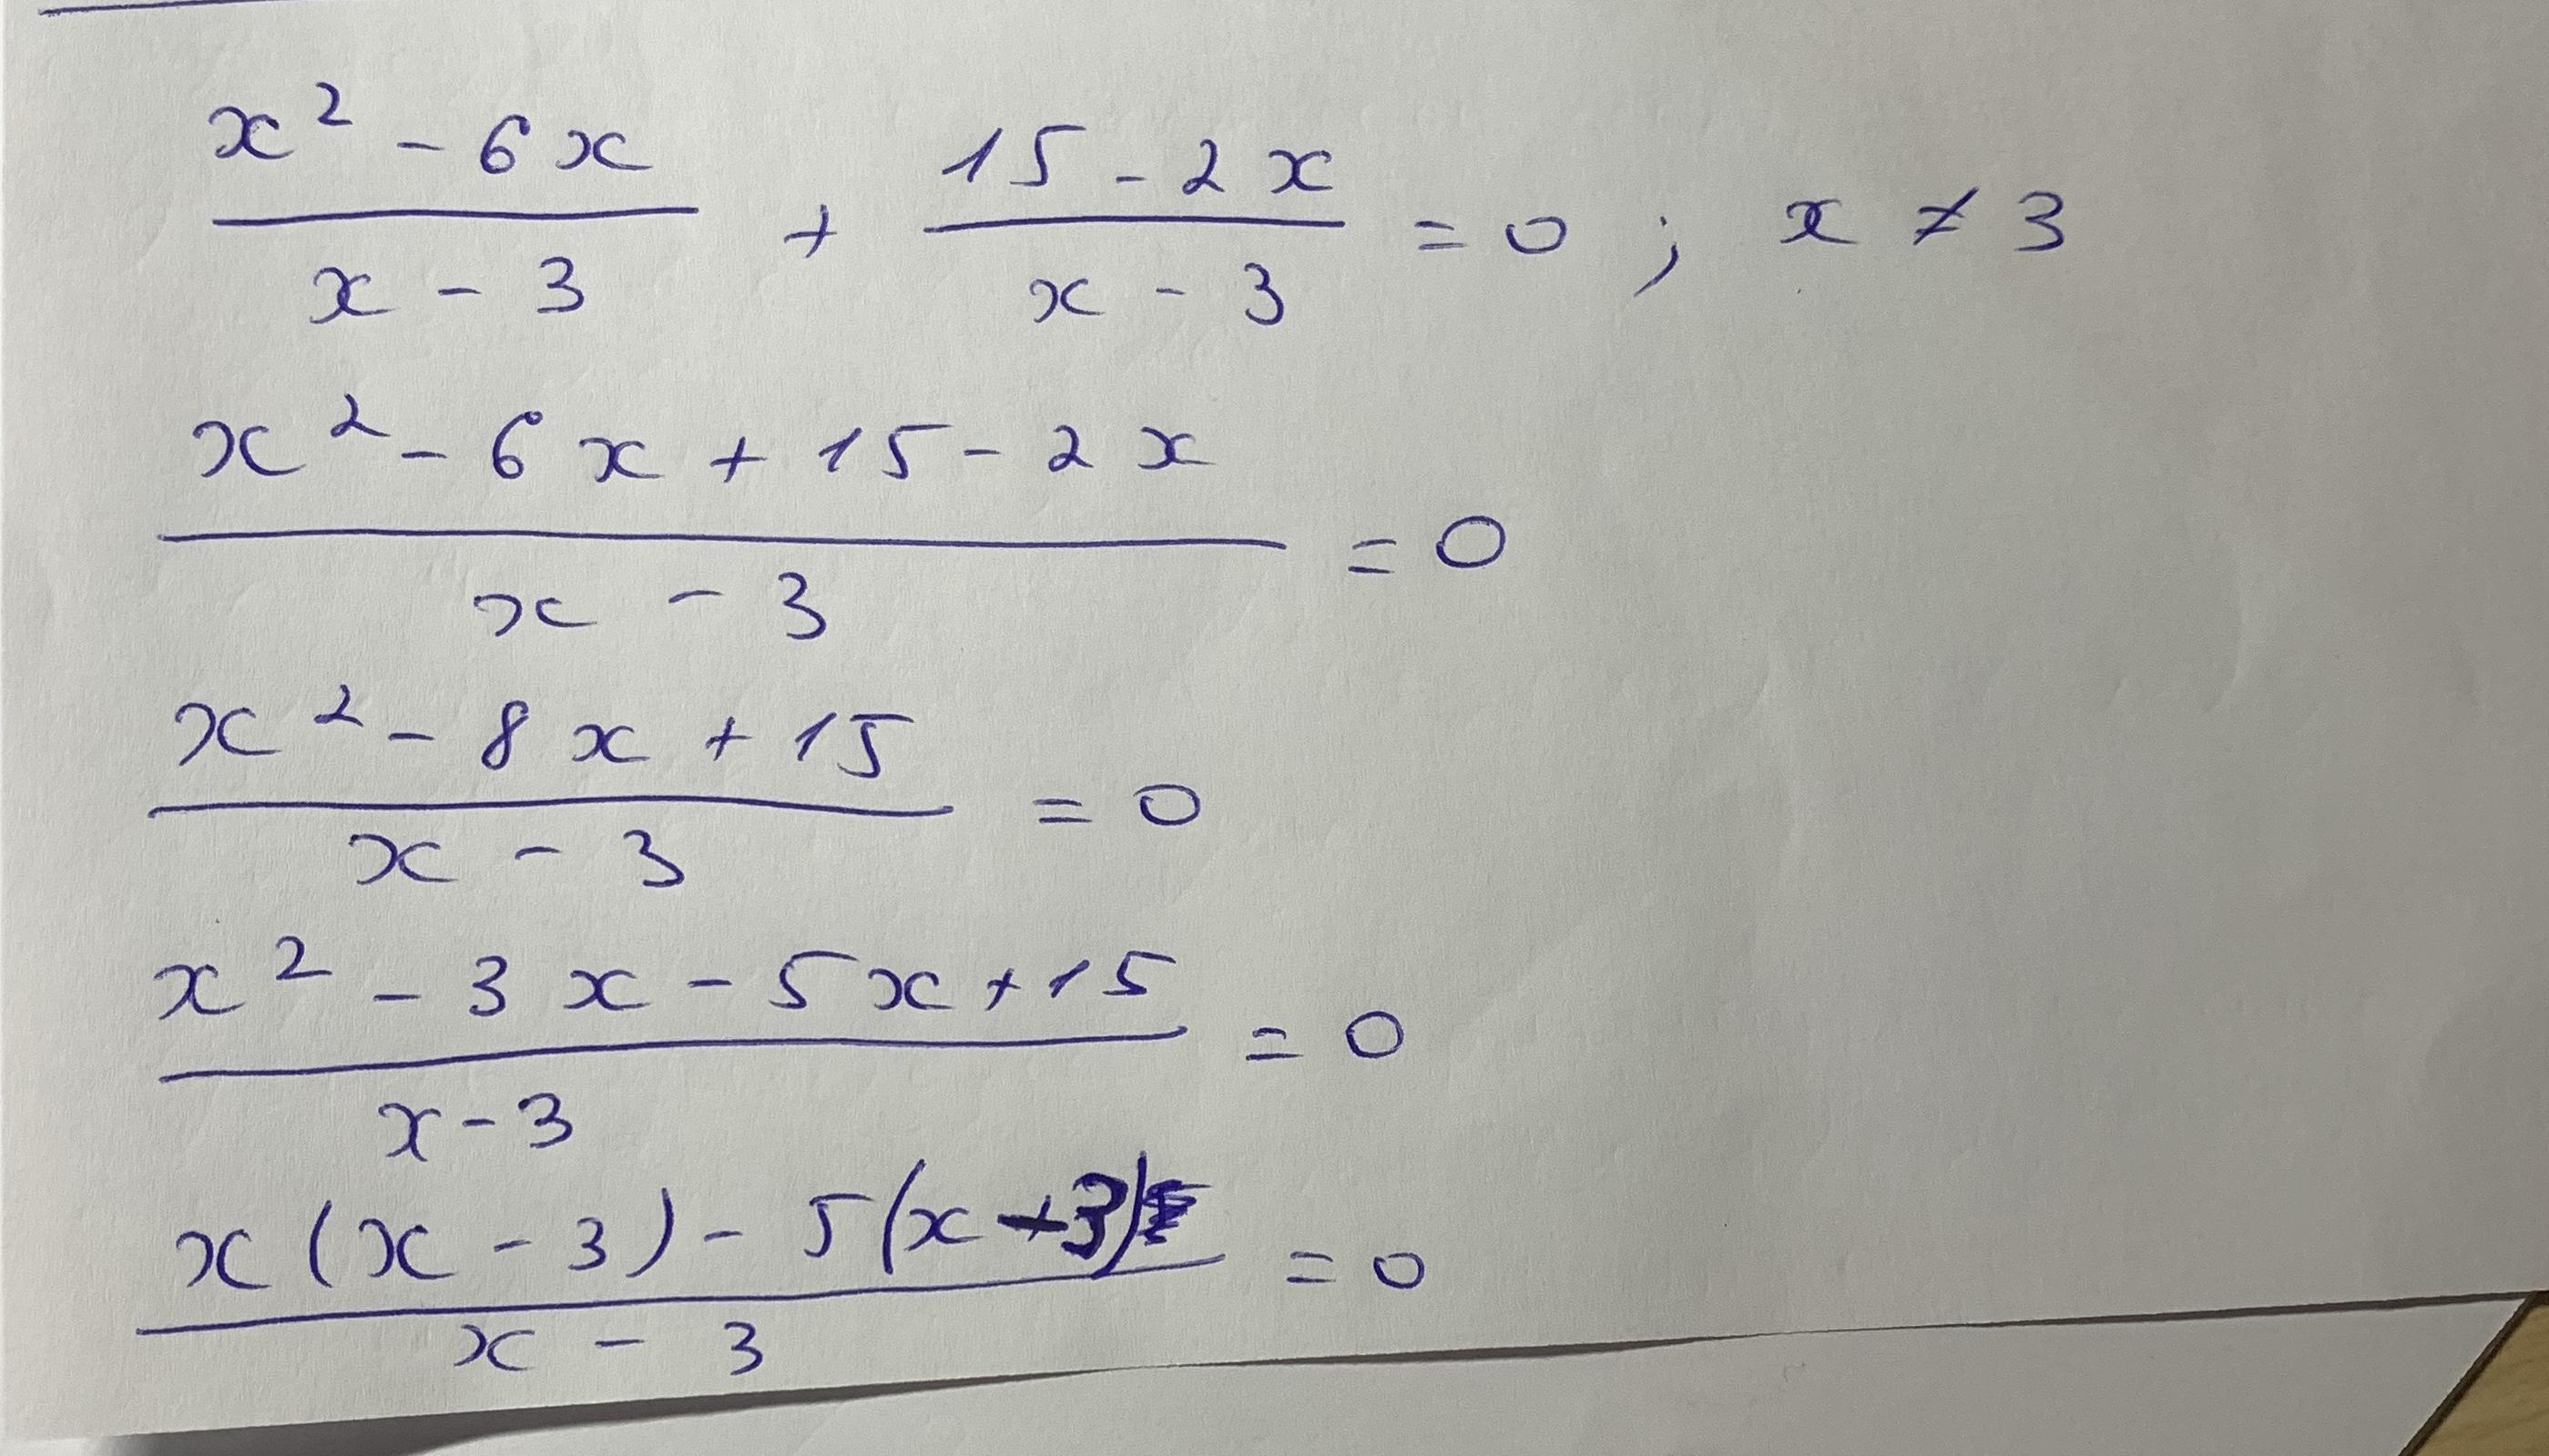 (x² - 6x)/(x - 3) + (15 - 2x)/(x - 3) = 0 ; x ≠ 3
(x² - 6x + 15 - 2x)/(x - 3) = 0
(x² - 8x + 15)/(x - 3) = 0
(x² - 3x - 5x + 15)/(x - 3) = 0
(x(x - 3) - 5(x - 3))/(x - 3) = 0